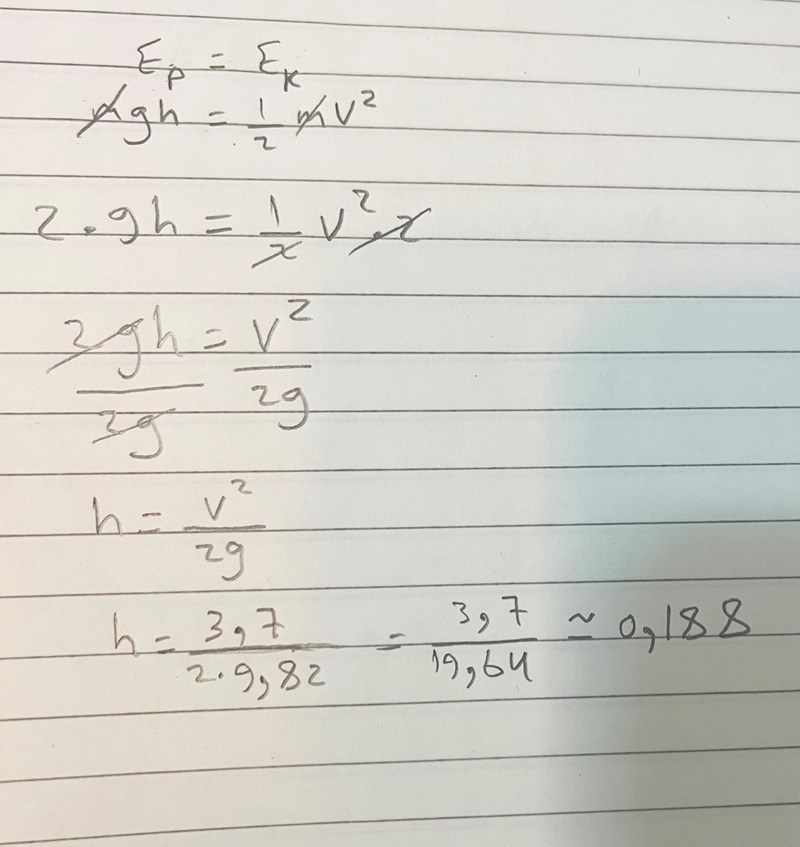 Ep = Ek
mgh = 1/2 mv²
2 · gh = 1/2 v² · 2
2gh/2g = v²/2g
h = v²/2g
h = 3,7/2·9,82 = 3,7/19,64 ≃ 0,188